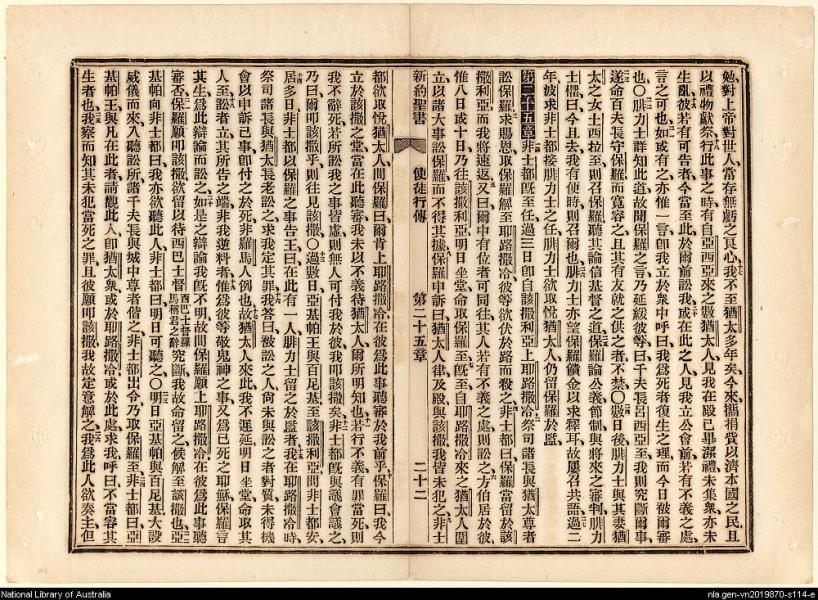 勉對上帝對世人常存無虧之良心我不至猶太多年矣今來攜捐貲以濟本國之民且
以禮物獻祭行此事之時有自亞西亞來之數猶太人見我在殿已畢潔禮未集衆亦未
生亂彼若有可告者今當至此於爾前訟我或在此之人見我立公會前若有不義之處
言之可也如或有之亦惟一言卽我立於衆中呼曰我爲死者復生之理而今日被爾審
也○腓力士詳知此道故聞保羅之言乃延緩彼等曰千夫長呂西亞至我則究斷爾事
遂命百夫長守保羅而寬容之且其有友就之供之者不禁○數日後腓力士與其妻猶
太之女士西拉至則召保羅聽其論信基督之道保羅論公義節制與將來之審判腓力
士懼曰今且去我有便時則召爾也腓力士亦望保羅饋金以求釋耳故屢召共語過二
年波求非士都接腓力士之任腓力士欲取悅猶太人仍留保羅於監
第二十五章非士都旣至任過三日卽自該撒利亞上耶路撒冷祭司諸長與猶太尊者
訟保羅求賜恩取保羅解至耶路撒冷彼等欲伏於路而殺之非士都曰保羅當留於該
撒利亞而我將速返又曰爾中有位者可同往其人若有不義之處則訟之方伯居於彼
惟八日或十日乃往該撒利亞明日坐堂命取保羅至旣至自耶路撒冷來之猶太人圍
立以諸大事訟保羅而不得其據保羅申訴曰猶太人律及殿與該撒我皆未犯之非士
新約聖書 使徒行傳 第二十五章 二十二
都欲取悅猶太人問保羅曰爾肯上耶路撒冷在彼爲此事聽審於我前乎保羅曰我今
立於該撒之堂當在此聽審我未以不義待猶太人爾所明知也若行不義有罪當死則
我不辭死若所訟我之事皆虛則無人可付我於彼我叩該撒矣非士都旣與議會議之
乃曰爾叩該撒乎則往見該撒○過數日亞基帕王與百尼基至該撒利亞問非士都安
居多日非士都以保羅之事告王曰在此有一人腓力士留之於監者我在耶路撒冷時
祭司諸長與猶太長老訟之求我定其罪我答曰被訟之人尙未與訟之者對質未得機
會以申訴己事卽付之於死非羅馬人例也故猶太人來此我不遲延明日坐堂命取其
人至訟者立其所告之端非我逆料者惟爲彼等敬鬼神之事又爲已死之耶穌保羅言
其生爲此辯論而訟之如是之辯論我旣不明故問保羅願上耶路撒冷在彼爲此事聽
審否保羅願叩該撒欲留以待西巴士督西巴士督羅馬稱君之辭究斷我故命留之候解至該撒也亞
基帕向非士都曰我亦欲聽此人非士都曰明日可聽之○明日亞基帕與百尼基大設
威儀而來入聽訟所諸千夫長與城中尊者偕之非士都出令乃取保羅至非士都曰亞
基帕王與凡在此者請觀此人卽猶太衆或於耶路撒冷或於此處求我呼曰不當容其
生者也我察而知其未犯當死之罪且彼願叩該撒我故定意解之我爲此人欲奏主但
National Library of Australia
nla.gen-vn2019870-s114-e